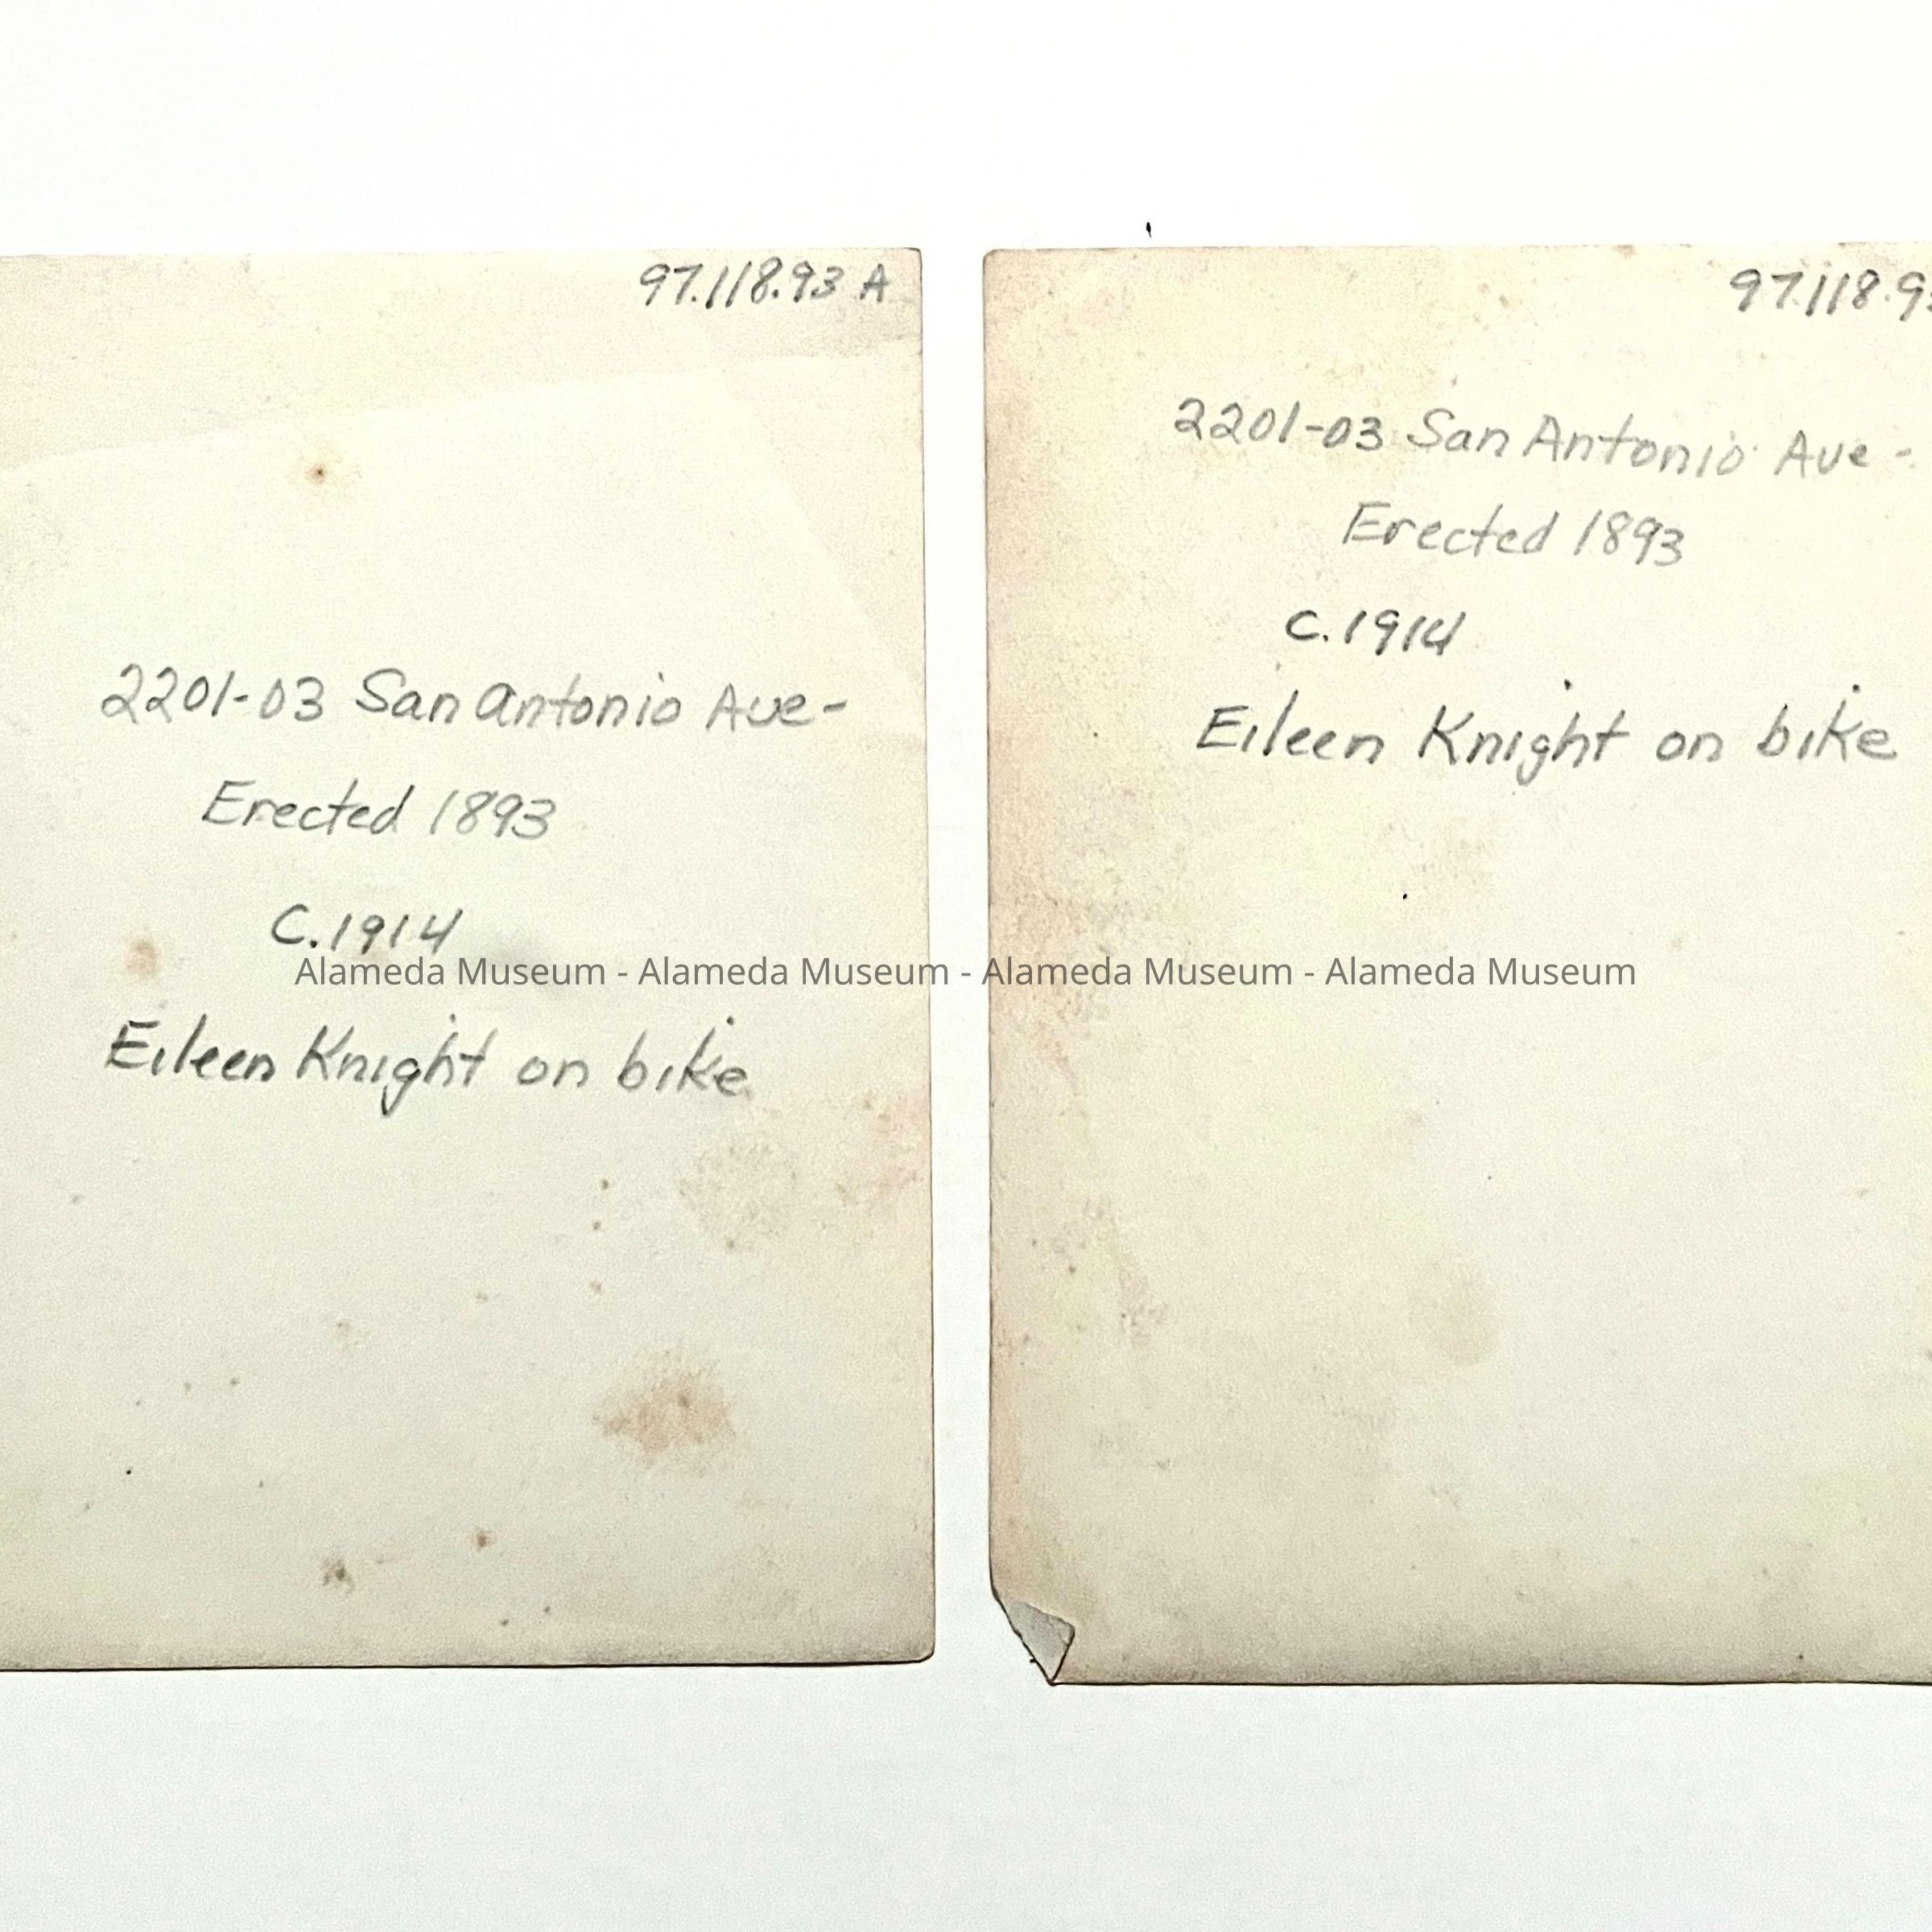 97.118.93 A
2201-03 San Antonio Ave-
Erected 1893
C. 1914
Eileen Knight on bike
97.118.93
2201-03 San Antonio Ave -
Erected 1893
C. 1914
Eileen Knight on bike
Alameda Museum - Alameda Museum - Alameda Museum - Alameda Museum